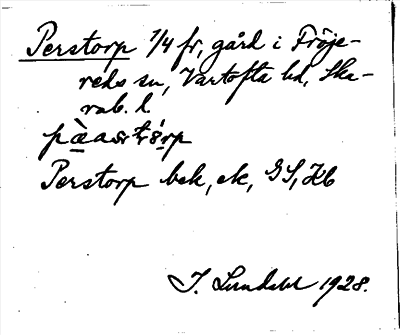 Perstorp 1/4 fr, gård i Fröje-
reds sn, Vartofta hd, Ska-
rab. l.
Perstorp bek, ek, GS, Kb
J. Lundahl 1928.